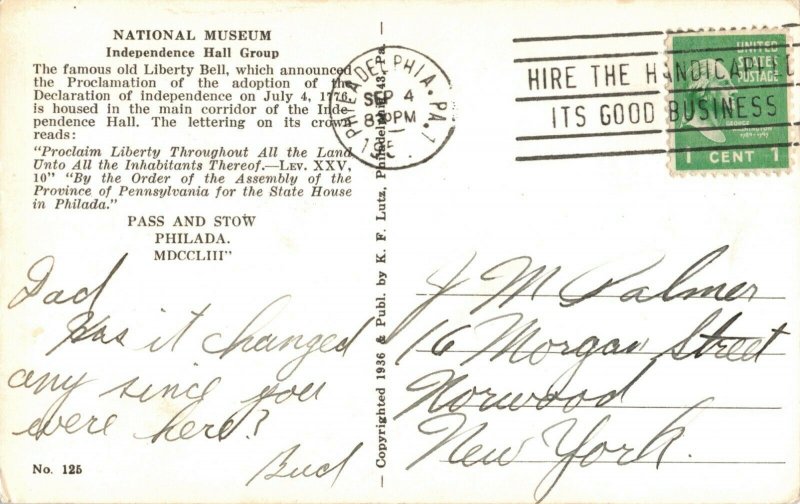 NATIONAL MUSEUM
Independence Hall Group
The famous old Liberty Bell, which announced
the Proclamation of the adoption of the
Declaration of independence on July 4, 1776,
is housed in the main corridor of the Inde-
pendence Hall. The lettering on its crown
reads:
"Proclaim Liberty Throughout All the Land
Unto All the Inhabitants Thereof.—LEV. XXV,
10" "By the Order of the Assembly of the
Province of Pennsylvania for the State House
in Philada."
PASS AND STOW
PHILADA.
MDCCLIII"
Dad
Has it changed
any since you
were here?
Bud
No. 125
Copyrighted 1936 & Publ. by K. F. Lutz, Philadelphia 43, Pa.
PHILADELPHIA. PA.
SEP 4
PM
HIRE THE HANDICAPPED
ITS GOOD BUSINESS
UNITED
STATES
POSTAGE
GEORGE
WASHINGTON
1789-1797
1 CENT 1
J M Palmer
16 Morgan Street
Norwood
New York.